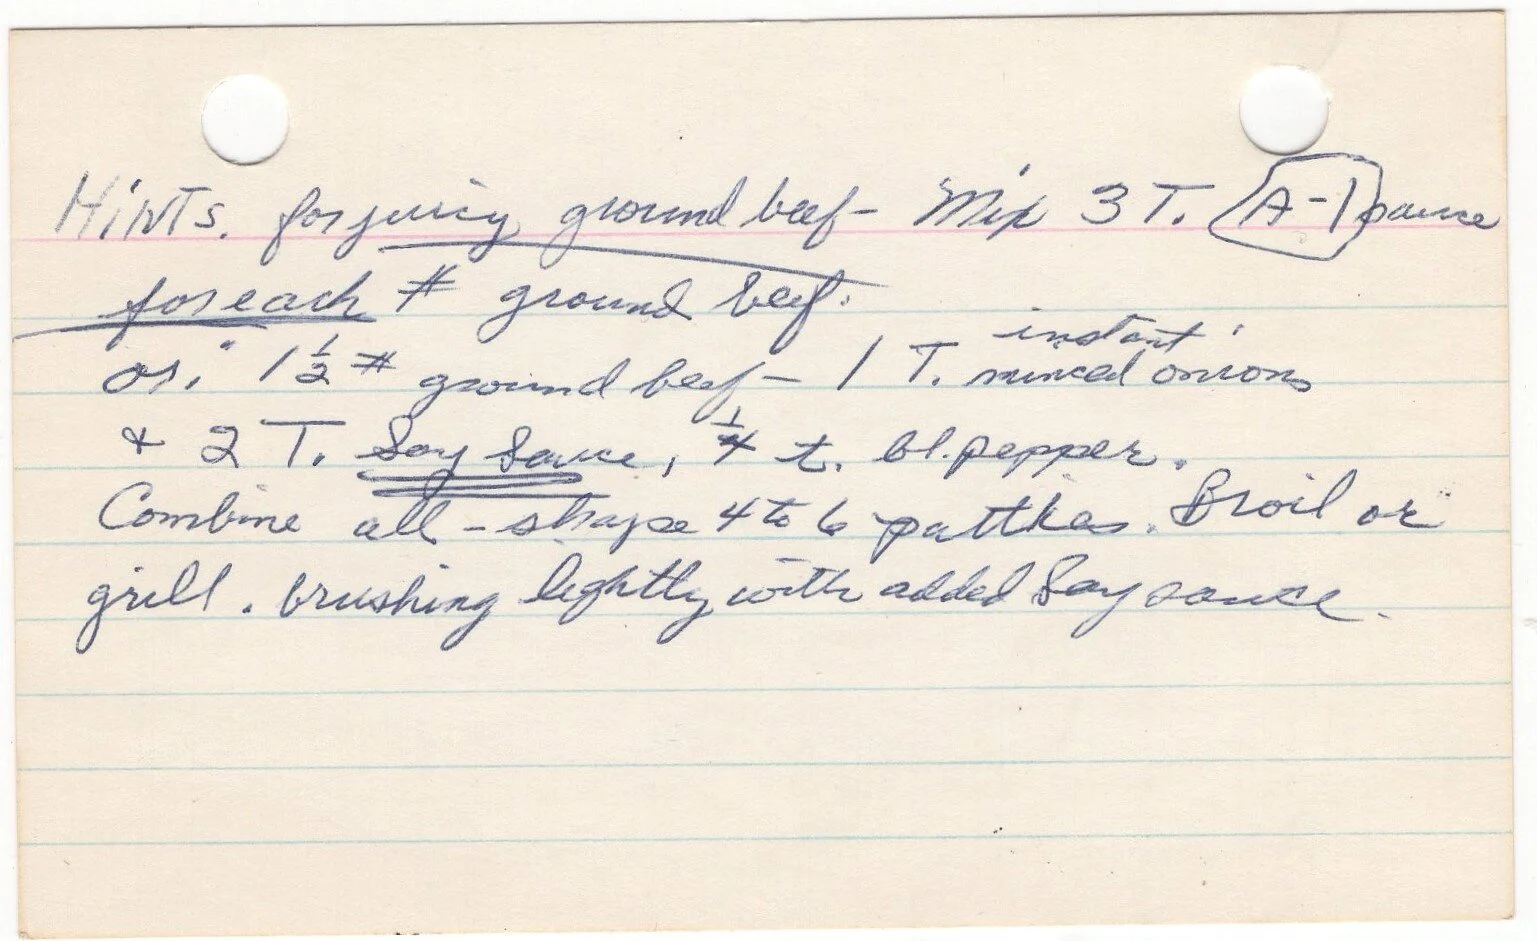 HiNTs. for juicy ground beef - Mix 3 T. A-1 sauce
for each # ground beef.
or. 1 1/2 # ground beef - 1 T. instant minced onions
& 2 T. Soy Sauce, 1/4 t. bl. pepper.
Combine all - shape 4 to 6 patties. Broil or
grill. brushing lightly with added Soy sauce.